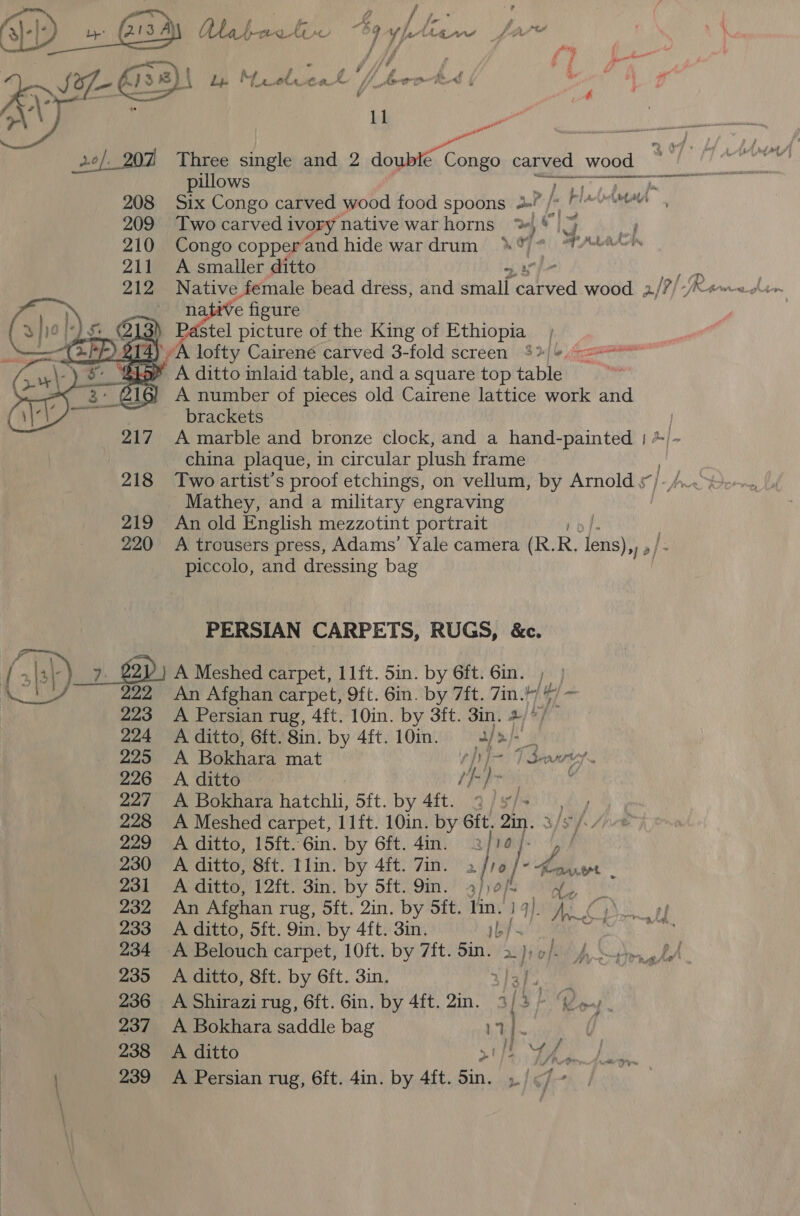 213A Alabastine Egyptian jar
213B Medical books
11
20/- 207 Three single and 2 double Congo carved wood
pillows
208 Six Congo carved wood food spoons
209 Two carved ivory native war horns
210 Congo copper and hide war drum
211 A smaller ditto
212 Native female bead dress, and small carved wood
native figure
213 Pastel picture of the King of Ethiopia
214 A lofty Cairene carved 3-fold screen
215 A ditto inlaid table, and a square top table
216 A number of pieces old Cairene lattice work and
brackets
217 A marble and bronze clock, and a hand-painted
china plaque, in circular plush frame
218 Two artist's proof etchings, on vellum, by Arnold
Mathey, and a military engraving
219 An old English mezzotint portrait
220 A trousers press, Adams' Yale camera (R.R. lens),
piccolo, and dressing bag
PERSIAN CARPETS, RUGS, &c.
221 A Meshed carpet, 11ft. 5in. by 6ft. 6in.
222 An Afghan carpet, 9ft. 6in. by 7ft. 7in.
223 A Persian rug, 4ft. 10in. by 3ft. 3in.
224 A ditto, 6ft. 8in. by 4ft. 10in.
225 A Bokhara mat
226 A ditto
227 A Bokhara hatchli, 5ft. by 4ft.
228 A Meshed carpet, 11ft. 10in. by 6ft. 2in.
229 A ditto, 15ft. 6in. by 6ft. 4in.
230 A ditto, 8ft. 11in. by 4ft. 7in.
231 A ditto, 12ft. 3in. by 5ft. 9in.
232 An Afghan rug, 5ft. 2in. by 5ft. 1in.
233 A ditto, 5ft. 9in. by 4ft. 3in.
234 A Belouch carpet, 10ft. by 7ft. 5in.
235 A ditto, 8ft. by 6ft. 3in.
236 A Shirazi rug, 6ft. 6in. by 4ft. 2in.
237 A Bokhara saddle bag
238 A ditto
239 A Persian rug, 6ft. 4in. by 4ft. 5in.